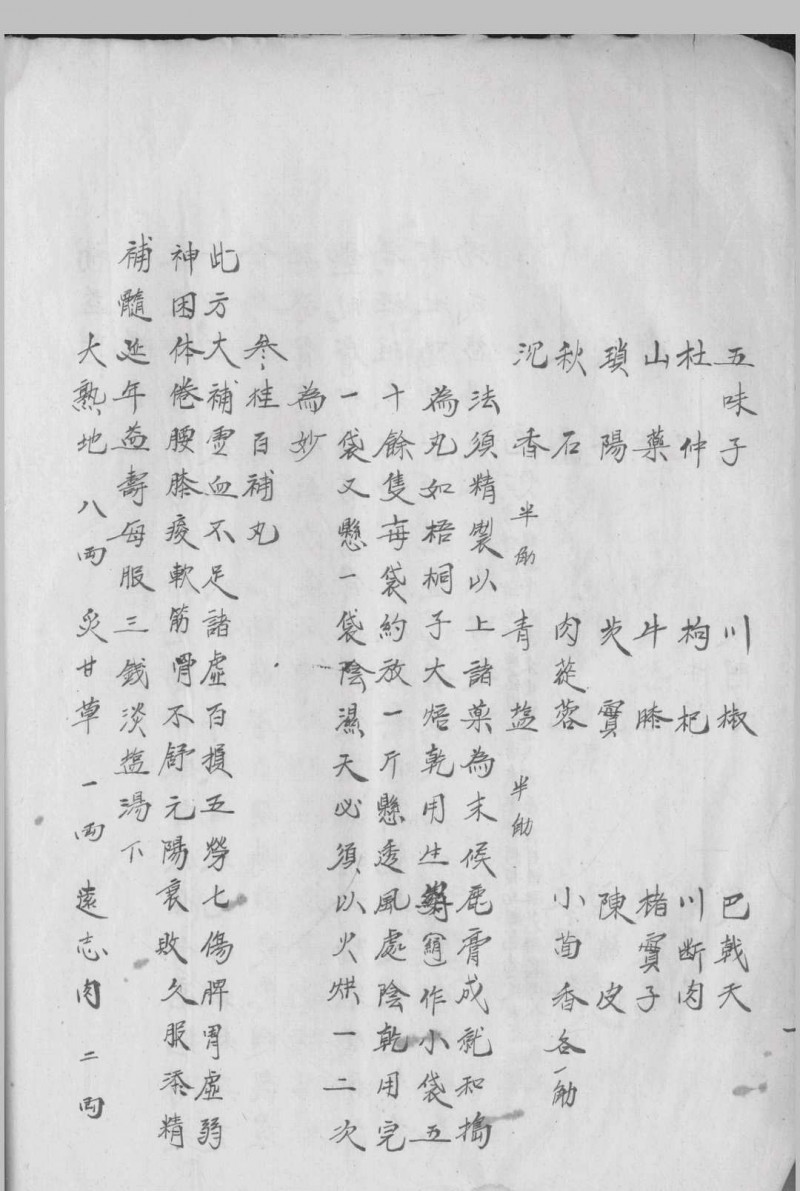 五味子 川椒 巴戟天
杜仲 枸杞 川断肉
山藥 牛膝 楮實子
瑣陽 芡實 陳皮
秋石 肉蓯蓉 小茴香各一觔
沉香半觔 青塩半觔
法須精製以上諸藥為末候鹿膏成就和搗
為丸如梧桐子大焙乾用生絹作小袋五
十餘隻每袋約放一斤懸透風處陰乾用完
一袋又懸一袋陰濕天必須以火烘一二次
為妙
叅桂百補丸
此方大補雪血不足諸虛百損五勞七傷脾胃虛弱
神困体倦腰膝痠軟筋骨不舒元陽衰敗久服添精
補髓延年益壽每服三錢淡塩湯下
大熟地八兩 炙甘草一兩 遠志肉二兩